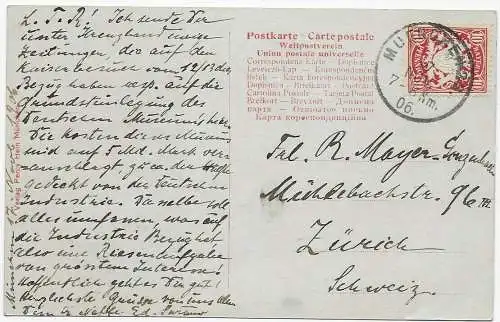 L. T. R! Ich sende Dir
unter Kreuzband neue
Zeitungen, die auf den
Kaiserbesuch vom 12/13 des
Bezug haben resp. auf die
Grundsteinlegung des
Deutschen Museums hier.
Die Kosten dieses Museums
sind auf 5 Md. Mark ver-
anschlagt, zu ca. der Hälfte
gedeckt von der Deutschen
Industrie. Dasselbe soll
alles umfassen, was auf
die Industrie Bezughat
also eine Riesenaufgabe
von grösstem Interesse.
Hoffentlich geht es Dir gut!
Herzlichste Grüsse von uns allen
Dein Ed.
München
Verlag
Postkarte Carte postale
Weltpostverein
Union postale universelle
Correspondenzkarte - Dopisnice
Levelező-Lap - Korespondenční
lístek - Karta korespondencyjna
Dopisnica - Briefkaart - Postcard
Cartolina Postale - Tarjeta Postal
Brefkort - Brevkort - Дописна
карта - Открытое письмо
Карта кореспонденцийна
MÜNCHEN
NOV.
7
Nm.
06.
10
Frl. R. Mayer-
Mühlebachstr. 96 III
Zürich
Schweiz.